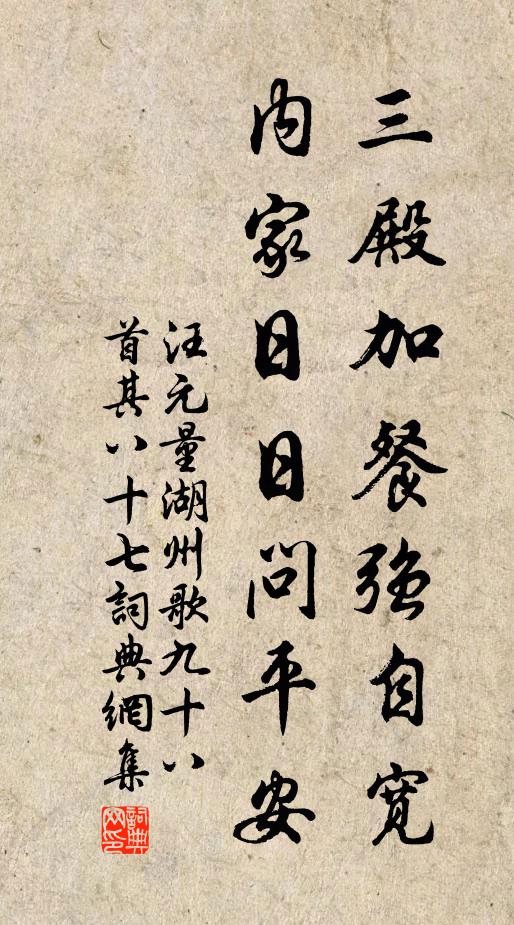 三殿加餐強自寬
内家日日問平安
汪元量湖州歌九十八
首其八十七詞典網集
詞典
网印